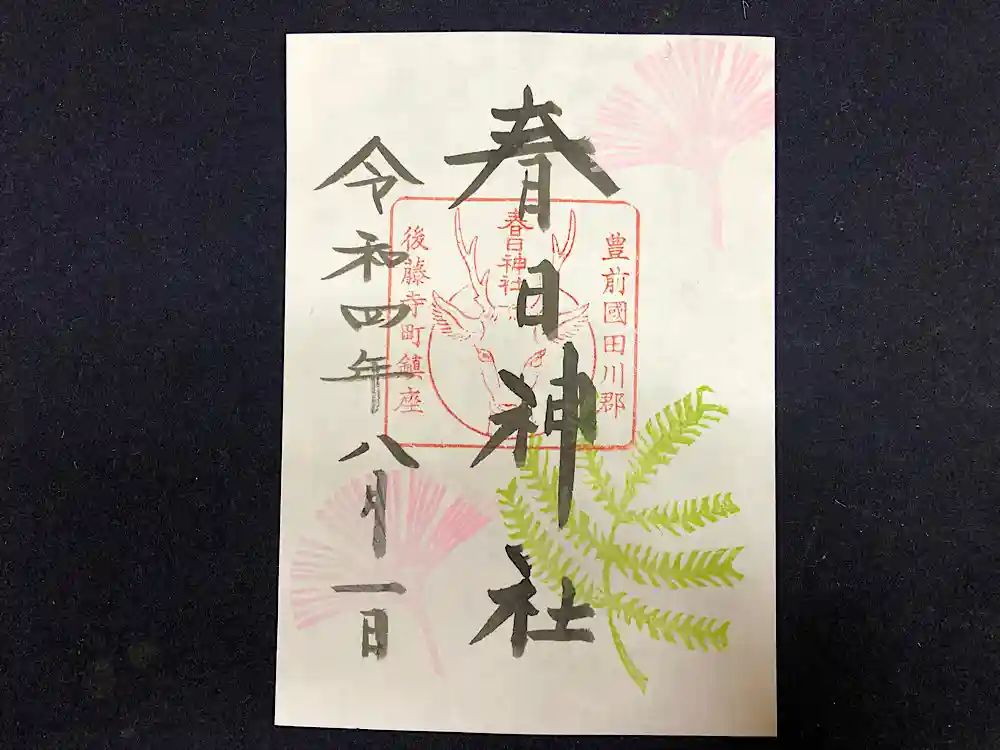 春日神社
豊前國田川郡
春日神社
後藤寺町鎮座
令和四年八月一日